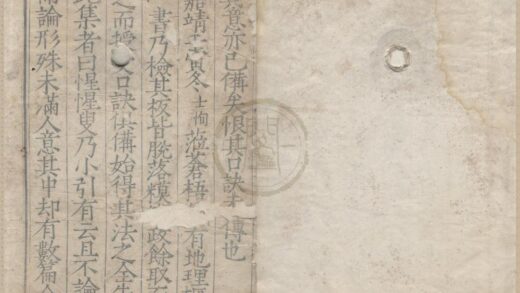 其意亦已備矣恨其口訣傳也
嘉靖壬寅冬士恂蒞蒼梧有地理
書乃檢其板皆脫落糢政餘取
之而授口訣俱備始得其法之全
集者曰惺惺叟乃小引有云且不論
論形殊未滿人意其中却有數篇